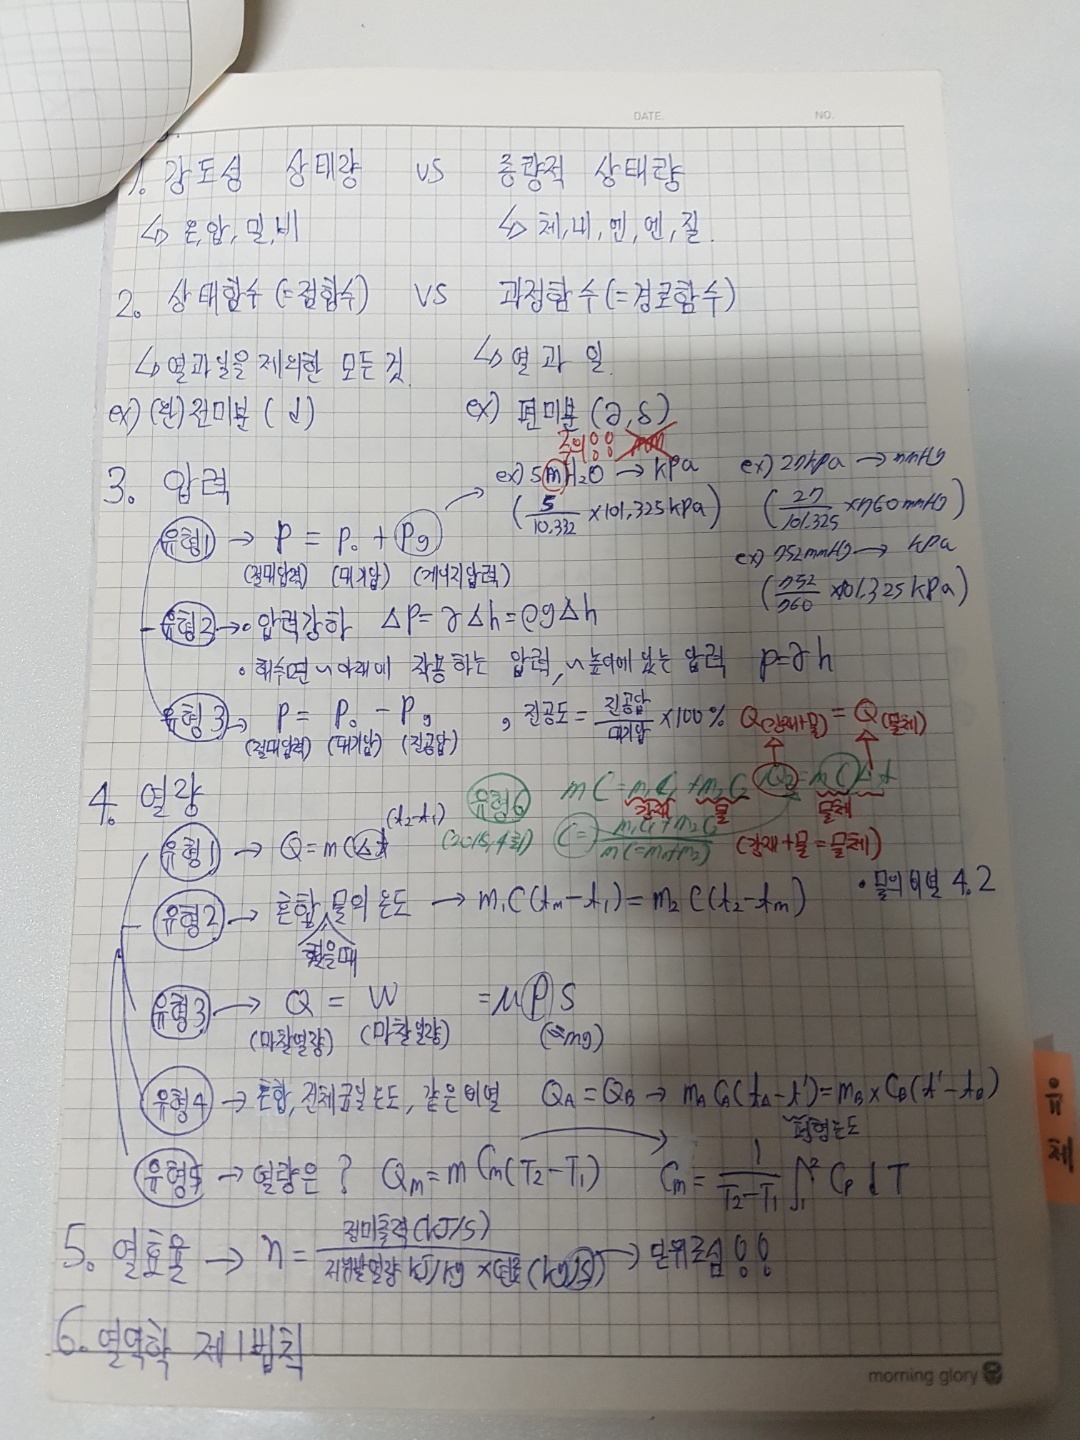 DATE.
NO.
1. 강도성 상태량 vs 종량적 상태량
↳ 온, 압, 밀, 비
↳ 체, 내, 엔, 엔, 질.
2. 상태함수 (=점함수) vs 과정함수 (=경로함수)
↳ 열과일을 제외한 모든 것.
↳ 열 과 일.
ex) (완)전미분 (d)
ex) 편미분 (∂, δ)
주의!!
3. 압력
ex) 5mH₂O → kPa
ex) 27kPa → mmHg
(5/10.332 ×101.325kPa)
(27/101.325 ×760mmHg)
유형1 → P = P₀ + Pg
(절대압력) (대기압) (게이지압력)
ex) 752mmHg → kPa
(752/760 ×101.325kPa)
유형2 → • 압력강하 ΔP=γΔh=ρgΔh
• 해수면 ~아래에 작용하는 압력, ~높이에 있는 압력 P=γh
유형3 → P = P₀ - Pg, 진공도 = 진공압/대기압 ×100%
(절대압력) (대기압) (진공압)
Q(강재+물) = Q(물체)
4. 열량
유형6 mC=m₁C₁+m₂C₂
강재 물 물체
(2018, 4회) C= m₁C₁+m₂C₂/m(=m₁+m₂)
(강재+물=물체)
(t₂-t₁)
유형1 → Q=mCΔt
• 물의비열 4.2
유형2 → 혼합 물의 온도 → m₁C(tm-t₁)=m₂C(t₂-tm)
유형3 → Q = W = μPS
(마찰열량) (마찰일량) (=mg)
유형4 → 혼합, 전체금속온도, 같은비열 QA=QB → mA CA(tA-t')=mB×CB(t'-tB)
평형온도
유형5 → 열량은? Qm=mCm(T₂-T₁) Cm= 1/T₂-T₁ ∫₁² Cp dT
5. 열효율 → η= 정미출력(kJ/s)/저위발열량 kJ/kg ×연료(kg/s) → 단위조심!!
6. 열역학 제1법칙
유체
morning glory